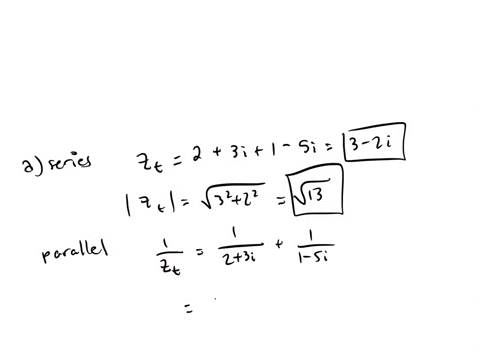 a) series z_t = 2 + 3i + 1 - 5i = 3 - 2i
|z_t| = √(3² + 2²) = √13
parallel 1/z_t = 1/(2+3i) + 1/(1-5i)
=